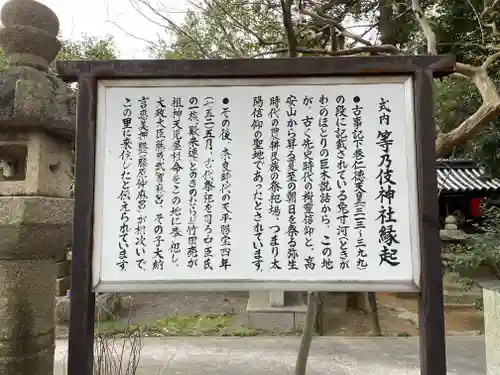 式内 等乃伎神社縁起
●古事記下巻仁徳天皇(三一三〜三九九)
の段に記載されている兎寸河(ときが
わ)のほとりの巨木説話から、この地
が、古く先史時代の樹霊信仰と、高
安山から昇る夏至の朝日を祭る弥生
時代の農耕民族の祭祀場、つまり太
陽信仰の聖地であったとされています。
●その後、奈良時代の天平勝宝四年
(七五二)五月、古代祭祀を司る中臣氏
の一族、殿来連(とのきのむらじ)竹田売が
祖神天児屋根命をこの地に奉祀し、
太政大臣藤原武智麻呂、その子大納
言恵美押勝(藤原仲麻呂)が相次いで、
この里に来住したと伝えられています。